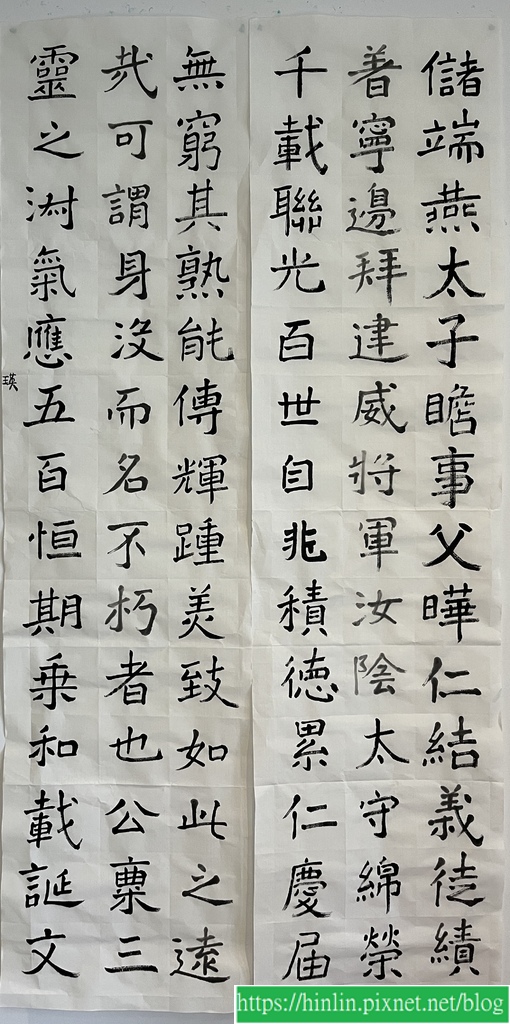 儲端燕太子瞻事父曄仁結義徒績
著寧邊拜建威將軍汝陰太守綿榮
千載聯光百世自非積德累仁慶届
無窮其熟能傳輝踵美致如此之遠
哉可謂身没而名不朽者也公稟三
靈之淑氣應五百恒期乘和載誕文
瑛
https://hinlin.pixnet.net/blog